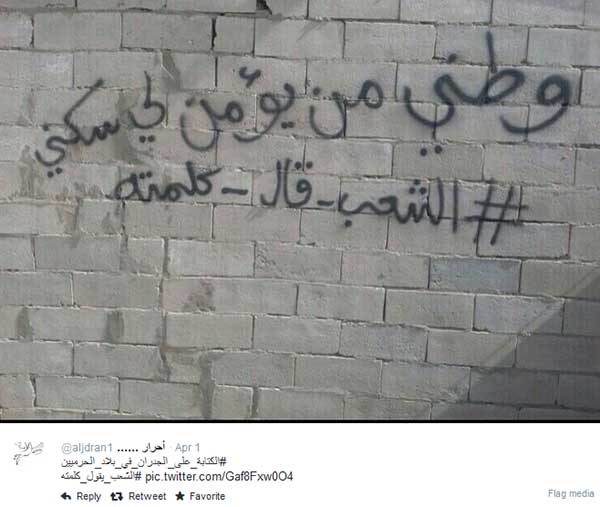 وطني من يؤمن لي سكني
#الشعب_قال_كلمته
أحرار ...... @aljdran1 · Apr 1
#الكتابة_على_الجدران_في_بلاد_الحرميين
#الشعب_يقول_كلمته pic.twitter.com/Gaf8Fxw0O4
Reply Retweet Favorite Flag media